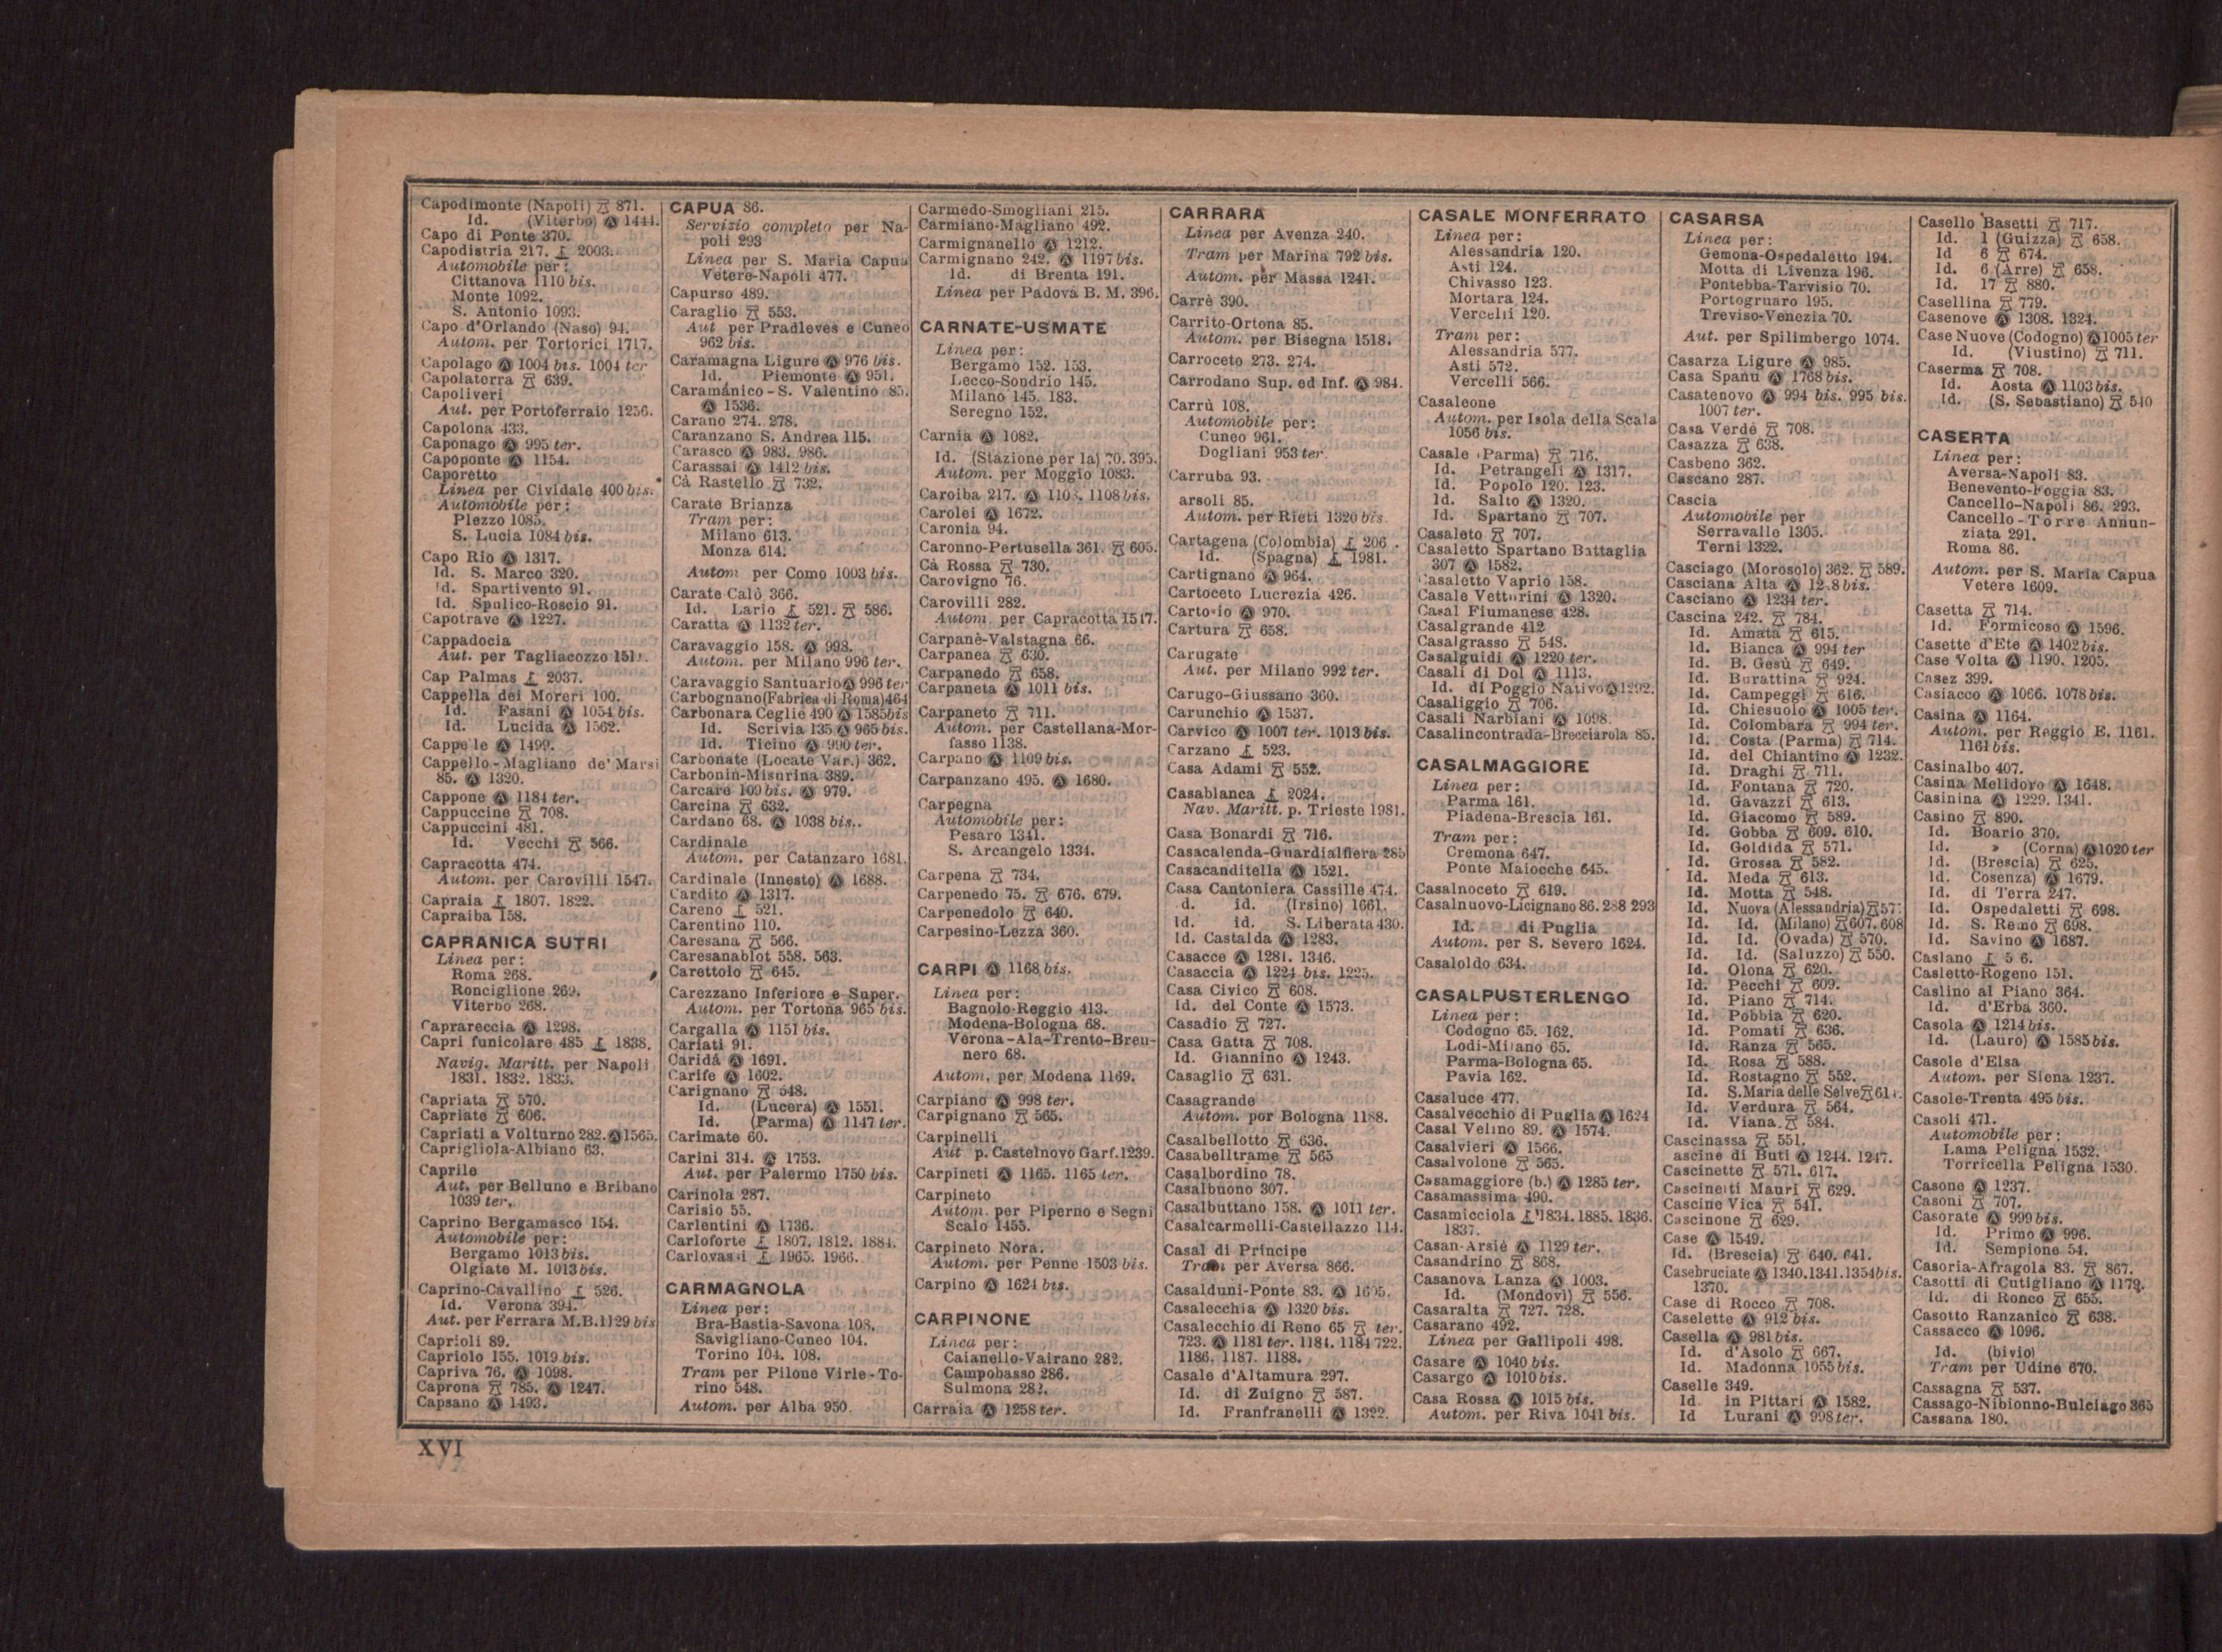 Capodimonte (Napoli) 871.
Id. (Viterbo) Ⓐ 1444.
Capo di Ponte 370.
Capodistria 217. 2003.
Automobile per:
Cittanova 1110 bis.
Monte 1092.
S. Antonio 1093.
Capo d'Orlando (Naso) 94.
Autom. per Tortorici 1717.
Capolago Ⓐ 1004 bis. 1004 ter
Capolaterra 639.
Capoliveri
Aut. per Portoferraio 1256.
Capolona 433.
Caponago Ⓐ 995 ter.
Capoponte Ⓐ 1154.
Caporetto
Linea per Cividale 400 bis.
Automobile per:
Plezzo 1085.
S. Lucia 1084 bis.
Capo Rio Ⓐ 1317.
Id. S. Marco 320.
Id. Spartivento 91.
Id. Spulico-Roscio 91.
Capotrave Ⓐ 1227.
Cappadocia
Aut. per Tagliacozzo
Cap Palmas 2037.
Cappella dei Moreri 100.
Id. Fasani Ⓐ 1054 bis.
Id. Lucida Ⓐ 1562.
Cappelle Ⓐ 1499.
Cappello-Magliano de' Marsi
85. Ⓐ 1320.
Cappone Ⓐ 1184 ter.
Cappuccine 708.
Cappuccini 481.
Id. Vecchi 566.
Capracotta 474.
Autom. per Carovilli 1547.
Capraia 1807. 1822.
Capraiba 158.
CAPRANICA SUTRI
Linea per:
Roma 268.
Ronciglione 269.
Viterbo 268.
Caprareccia Ⓐ 1298.
Capri funicolare 485 1838.
Navig. Maritt. per Napoli
1831. 1832. 1833.
Capriata 570.
Capriate 606.
Capriati a Volturno 282. Ⓐ 1565.
Caprigliola-Albiano 63.
Caprile
Aut. per Belluno e Bribano
1039 ter.
Caprino Bergamasco 154.
Automobile per:
Bergamo 1013 bis.
Olgiate M. 1013 bis.
Caprino-Cavallino 526.
Id. Verona 394.
Aut. per Ferrara M.B. 1129 bis
Caprioli 89.
Capriolo 155. 1019 bis.
Capriva 76. Ⓐ 1098.
Caprona 785. Ⓐ 1247.
Capsano Ⓐ 1493.
CAPUA 86.
Servizio completo per Na-
poli 293
Linea per S. Maria Capua
Vetere-Napoli 477.
Capurso 489.
Caraglio 553.
Aut per Pradleves e Cuneo
962 bis.
Caramagna Ligure Ⓐ 976 bis.
Id. Piemonte Ⓐ 951.
Caramánico-S. Valentino 85.
Ⓐ 1536.
Carano 274. 278.
Caranzano S. Andrea 115.
Carasco Ⓐ 983. 986.
Carassai Ⓐ 1412 bis.
Cà Rastello 732.
Carate Brianza
Tram per:
Milano 613.
Monza 614.
Autom per Como 1003 bis.
Carate Calò 366.
Id. Lario 521. 586.
Caratta Ⓐ 1132 ter.
Caravaggio 158. Ⓐ 998.
Autom. per Milano 996 ter.
Caravaggio Santuario Ⓐ 996 ter
Carbognano (Fabrica di Roma) 464
Carbonara Ceglie 490 Ⓐ 1585 bis
Id. Scrivia 135 Ⓐ 965 bis.
Id. Ticino Ⓐ 990 ter.
Carbonate (Locate Var.) 362.
Carbonin-Misurina 389.
Carcare 109 bis. Ⓐ 979.
Carcina 632.
Cardano 68. Ⓐ 1038 bis..
Cardinale
Autom. per Catanzaro 1681.
Cardinale (Innesto) Ⓐ 1688.
Cardito Ⓐ 1317.
Careno 521.
Carentino 110.
Caresana 566.
Caresanablot 558. 563.
Carettolo 645.
Carezzano Inferiore e Super.
Autom. per Tortona 965 bis.
Cargalla Ⓐ 1151 bis.
Cariati 91.
Caridà Ⓐ 1691.
Carife Ⓐ 1602.
Carignano 548.
Id. (Lucera) Ⓐ 1551.
Id. (Parma) Ⓐ 1147 ter.
Carimate 60.
Carini 314. Ⓐ 1753.
Aut. per Palermo 1750 bis.
Carinola 287.
Carisio 55.
Carlentini Ⓐ 1736.
Carloforte 1807. 1812. 1884.
Carlovassi 1965. 1966.
CARMAGNOLA
Linea per:
Bra-Bastia-Savona 108.
Savigliano-Cuneo 104.
Torino 104. 108.
Tram per Pilone Virle-To-
rino 548.
Autom. per Alba 950.
Carmedo-Smogliani 215.
Carmiano-Magliano 492.
Carmignanello Ⓐ 1212.
Carmignano 242. Ⓐ 1197 bis.
Id. di Brenta 191.
Linea per Padova B. M. 396.
CARNATE-USMATE
Linea per:
Bergamo 152. 153.
Lecco-Sondrio 145.
Milano 145. 183.
Seregno 152.
Carnia Ⓐ 1082.
Id. (Stazione per la) 70. 395.
Autom. per Moggio 1083.
Caroiba 217. Ⓐ 1108 bis.
Carolei Ⓐ 1672.
Caronia 94.
Caronno-Pertusella 361. 605.
Cà Rossa 730.
Carovigno 76.
Carovilli 282.
Autom. per Capracotta 1547.
Carpanè-Valstagna 66.
Carpanea 630.
Carpanedo 658.
Carpaneta Ⓐ 1011 bis.
Carpaneto 711.
Autom. per Castellana-Mor-
fasso 1138.
Carpano Ⓐ 1109 bis.
Carpanzano 495. Ⓐ 1680.
Carpegna
Automobile per:
Pesaro 1341.
S. Arcangelo 1334.
Carpena 734.
Carpenedo 75. 676. 679.
Carpenedolo 640.
Carpesino-Lezza 360.
CARPI Ⓐ 1168 bis.
Linea per:
Bagnolo-Reggio 413.
Modena-Bologna 68.
Verona-Ala-Trento-Bren-
nero 68.
Autom. per Modena 1169.
Carpiano Ⓐ 998 ter.
Carpignano 565.
Carpinelli
Aut p. Castelnovo Garf. 1239.
Carpineti Ⓐ 1165. 1165 ter.
Carpineto
Autom. per Piperno e Segni
Scalo 1455.
Carpineto Nora.
Autom. per Penne 1503 bis.
Carpino Ⓐ 1624 bis.
CARPINONE
Linea per:
Caianello-Vairano 282.
Campobasso 286.
Sulmona 282.
Carraia Ⓐ 1258 ter.
CARRARA
Linea per Avenza 240.
Tram per Marina 792 bis.
Autom. per Massa 1241.
Carrè 390.
Carrito-Ortona 85.
Autom. per Bisegna 1518.
Carroceto 273. 274.
Carrodano Sup. ed Inf. Ⓐ 984.
Carrù 108.
Automobile per:
Cuneo 961.
Dogliani 953 ter.
Carruba 93.
arsoli 85.
Autom. per Rieti 1320 bis
Cartagena (Colombia) 206 .
Id. (Spagna) 1981.
Cartignano Ⓐ 964.
Cartoceto Lucrezia 426.
Cartosio Ⓐ 970.
Cartura 658.
Carugate
Aut. per Milano 992 ter.
Carugo-Giussano 360.
Carunchio Ⓐ 1537.
Carvico Ⓐ 1007 ter. 1013 bis.
Carzano 523.
Casa Adami 552.
Casablanca 2024.
Nav. Maritt. p. Trieste 1981.
Casa Bonardi 716.
Casacalenda-Guardialfiera 285
Casacanditella Ⓐ 1521.
Casa Cantoniera Cassille 474.
d. id. (Irsino) 1661.
Id. id. S. Liberata 430.
Id. Castalda Ⓐ 1283.
Casacce Ⓐ 1281. 1346.
Casaccia Ⓐ 1224 bis. 1225.
Casa Civico 608.
Id. del Conte Ⓐ 1573.
Casadio 727.
Casa Gatta 708.
Id. Giannino Ⓐ 1243.
Casaglio 631.
Casagrande
Autom. por Bologna 1188.
Casalbellotto 636.
Casabelltrame 565
Casalbordino 78.
Casalbuono 307.
Casalbuttano 158. Ⓐ 1011 ter.
Casalcarmelli-Castellazzo 114.
Casal di Principe
Tram per Aversa 866.
Casalduni-Ponte 83. Ⓐ 1605.
Casalecchia Ⓐ 1320 bis.
Casalecchio di Reno 65 ter.
723. Ⓐ 1181 ter. 1184. 1184 722.
1186. 1187. 1188.
Casale d'Altamura 297.
Id. di Zuigno 587.
Id. Franfranelli Ⓐ 1322.
CASALE MONFERRATO
Linea per:
Alessandria 120.
Asti 124.
Chivasso 123.
Mortara 124.
Vercelli 120.
Tram per:
Alessandria 577.
Asti 572.
Vercelli 566.
Casaleone
Autom. per Isola della Scala
1056 bis.
Casale (Parma) 716.
Id. Petrangeli Ⓐ 1317.
Id. Popolo 120. 123.
Id. Salto Ⓐ 1320.
Id. Spartano 707.
Casaleto 707.
Casaletto Spartano Battaglia
307 Ⓐ 1582.
Casaletto Vaprio 158.
Casale Vetturini Ⓐ 1320.
Casal Fiumanese 428.
Casalgrande 412
Casalgrasso 548.
Casalguidi Ⓐ 1220 ter.
Casali di Dol Ⓐ 1113.
Id. di Poggio Nativo Ⓐ 1292.
Casaliggio 706.
Casali Narbiani Ⓐ 1098.
Casalincontrada-Brecciarola 85.
CASALMAGGIORE
Linea per:
Parma 161.
Piadena-Brescia 161.
Tram per:
Cremona 647.
Ponte Maiocche 645.
Casalnoceto 619.
Casalnuovo-Licignano 86. 288 293
Id. di Puglia
Autom. per S. Severo 1624.
Casaloldo 634.
CASALPUSTERLENGO
Linea per:
Codogno 65. 162.
Lodi-Milano 65.
Parma-Bologna 65.
Pavia 162.
Casaluce 477.
Casalvecchio di Puglia Ⓐ 1624
Casal Velino 89. Ⓐ 1574.
Casalvieri Ⓐ 1566.
Casalvolone 565.
Casamaggiore (b.) Ⓐ 1285 ter.
Casamassima 490.
Casamicciola 1834. 1885. 1836.
1837.
Casan-Arsiè Ⓐ 1129 ter.
Casandrino 868.
Casanova Lanza Ⓐ 1003.
Id. (Mondovì) 556.
Casaralta 727. 728.
Casarano 492.
Linea per Gallipoli 498.
Casare Ⓐ 1040 bis.
Casargo Ⓐ 1010 bis.
Casa Rossa Ⓐ 1015 bis.
Autom. per Riva 1041 bis.
CASARSA
Linea per:
Gemona-Ospedaletto 194.
Motta di Livenza 196.
Pontebba-Tarvisio 70.
Portogruaro 195.
Treviso-Venezia 70.
Aut. per Spilimbergo 1074.
Casarza Ligure Ⓐ 985.
Casa Spanu Ⓐ 1768 bis.
Casatenovo Ⓐ 994 bis. 995 bis.
1007 ter.
Casa Verdé 708.
Casazza 638.
Casbeno 362.
Cascano 287.
Cascia
Automobile per
Serravalle 1305.
Terni 1322.
Casciago (Morosolo) 362. 589.
Casciana Alta Ⓐ 12.8 bis.
Casciano Ⓐ 1234 ter.
Cascina 242. 784.
Id. Amata 615.
Id. Bianca Ⓐ 994 ter
Id. B. Gesù 649.
Id. Burattina 924.
Id. Campeggi 616.
Id. Chiesuolo Ⓐ 1005 ter.
Id. Colombara 994 ter.
Id. Costa (Parma) 714.
Id. del Chiantino Ⓐ 1232.
Id. Draghi 711.
Id. Fontana 720.
Id. Gavazzi 613.
Id. Giacomo 589.
Id. Gobba 609. 610.
Id. Goldida 571.
Id. Grossa 582.
Id. Meda 613.
Id. Motta 548.
Id. Nuova (Alessandria) 57
Id. Id. (Milano) 607. 608
Id. Id. (Ovada) 570.
Id. Id. (Saluzzo) 550.
Id. Olona 620.
Id. Pecchi 609.
Id. Piano 714.
Id. Pobbia 620.
Id. Pomati 636.
Id. Ranza 565.
Id. Rosa 588.
Id. Rostagno 552.
Id. S. Maria delle Selve 61
Id. Verdura 564.
Id. Viana. 584.
Cascinassa 551.
ascine di Buti Ⓐ 1244. 1247.
Cascinette 571. 617.
Cascinetti Mauri 629.
Cascine Vica 541.
Cascinone 629.
Case Ⓐ 1549.
Id. (Brescia) 640. 641.
Casebruciate Ⓐ 1340. 1341. 1354 bis.
1370.
Case di Rocco 708.
Caselette Ⓐ 912 bis.
Casella Ⓐ 981 bis.
Id. d'Asolo 667.
Id. Madonna 1055 bis.
Caselle 349.
Id. in Pittari Ⓐ 1582.
Id Lurani Ⓐ 998 ter.
Casello Basetti 717.
Id. 1 (Guizza) 658.
Id 6 674.
Id. 6 (Arre) 658.
Id. 17 880.
Casellina 779.
Casenove Ⓐ 1308. 1324.
Case Nuove (Codogno) Ⓐ 1005 ter
Id. (Viustino) 711.
Caserma 708.
Id. Aosta Ⓐ 1103 bis.
Id. (S. Sebastiano) 540
CASERTA
Linea per:
Aversa-Napoli 83.
Benevento-Foggia 83.
Cancello-Napoli 86. 293.
Cancello-Torre Annun-
ziata 291.
Roma 86.
Autom. per S. Maria Capua
Vetere 1609.
Casetta 714.
Id. Formicoso Ⓐ 1596.
Casette d'Ete Ⓐ 1402 bis.
Case Volta Ⓐ 1190. 1205.
Casez 399.
Casiacco Ⓐ 1066. 1078 bis.
Casina Ⓐ 1164.
Autom. per Reggio E. 1161.
1161 bis.
Casinalbo 407.
Casina Melidoro Ⓐ 1648.
Casinina Ⓐ 1229. 1341.
Casino 890.
Id. Boario 370.
Id. » (Corna) Ⓐ 1020 ter
Id. (Brescia) 625.
Id. Cosenza) Ⓐ 1679.
Id. di Terra 247.
Id. Ospedaletti 698.
Id. S. Remo 698.
Id. Savino Ⓐ 1687.
Caslano 5 6.
Casletto-Rogeno 151.
Caslino al Piano 364.
Id. d'Erba 360.
Casola Ⓐ 1214 bis.
Id. (Lauro) Ⓐ 1585 bis.
Casole d'Elsa
Autom. per Siena 1237.
Casole-Trenta 495 bis.
Casoli 471.
Automobile per:
Lama Peligna 1532.
Torricella Peligna 1530.
Casone Ⓐ 1237.
Casoni 707.
Casorate Ⓐ 999 bis.
Id. Primo Ⓐ 996.
Id. Sempione 54.
Casoria-Afragola 83. 867.
Casotti di Cutigliano Ⓐ 1179.
Id. di Ronco 655.
Casotto Ranzanico 638.
Cassacco Ⓐ 1096.
Id. (bivio)
Tram per Udine 670.
Cassagna 537.
Cassago-Nibionno-Bulciago 365
Cassana 180.
XVI